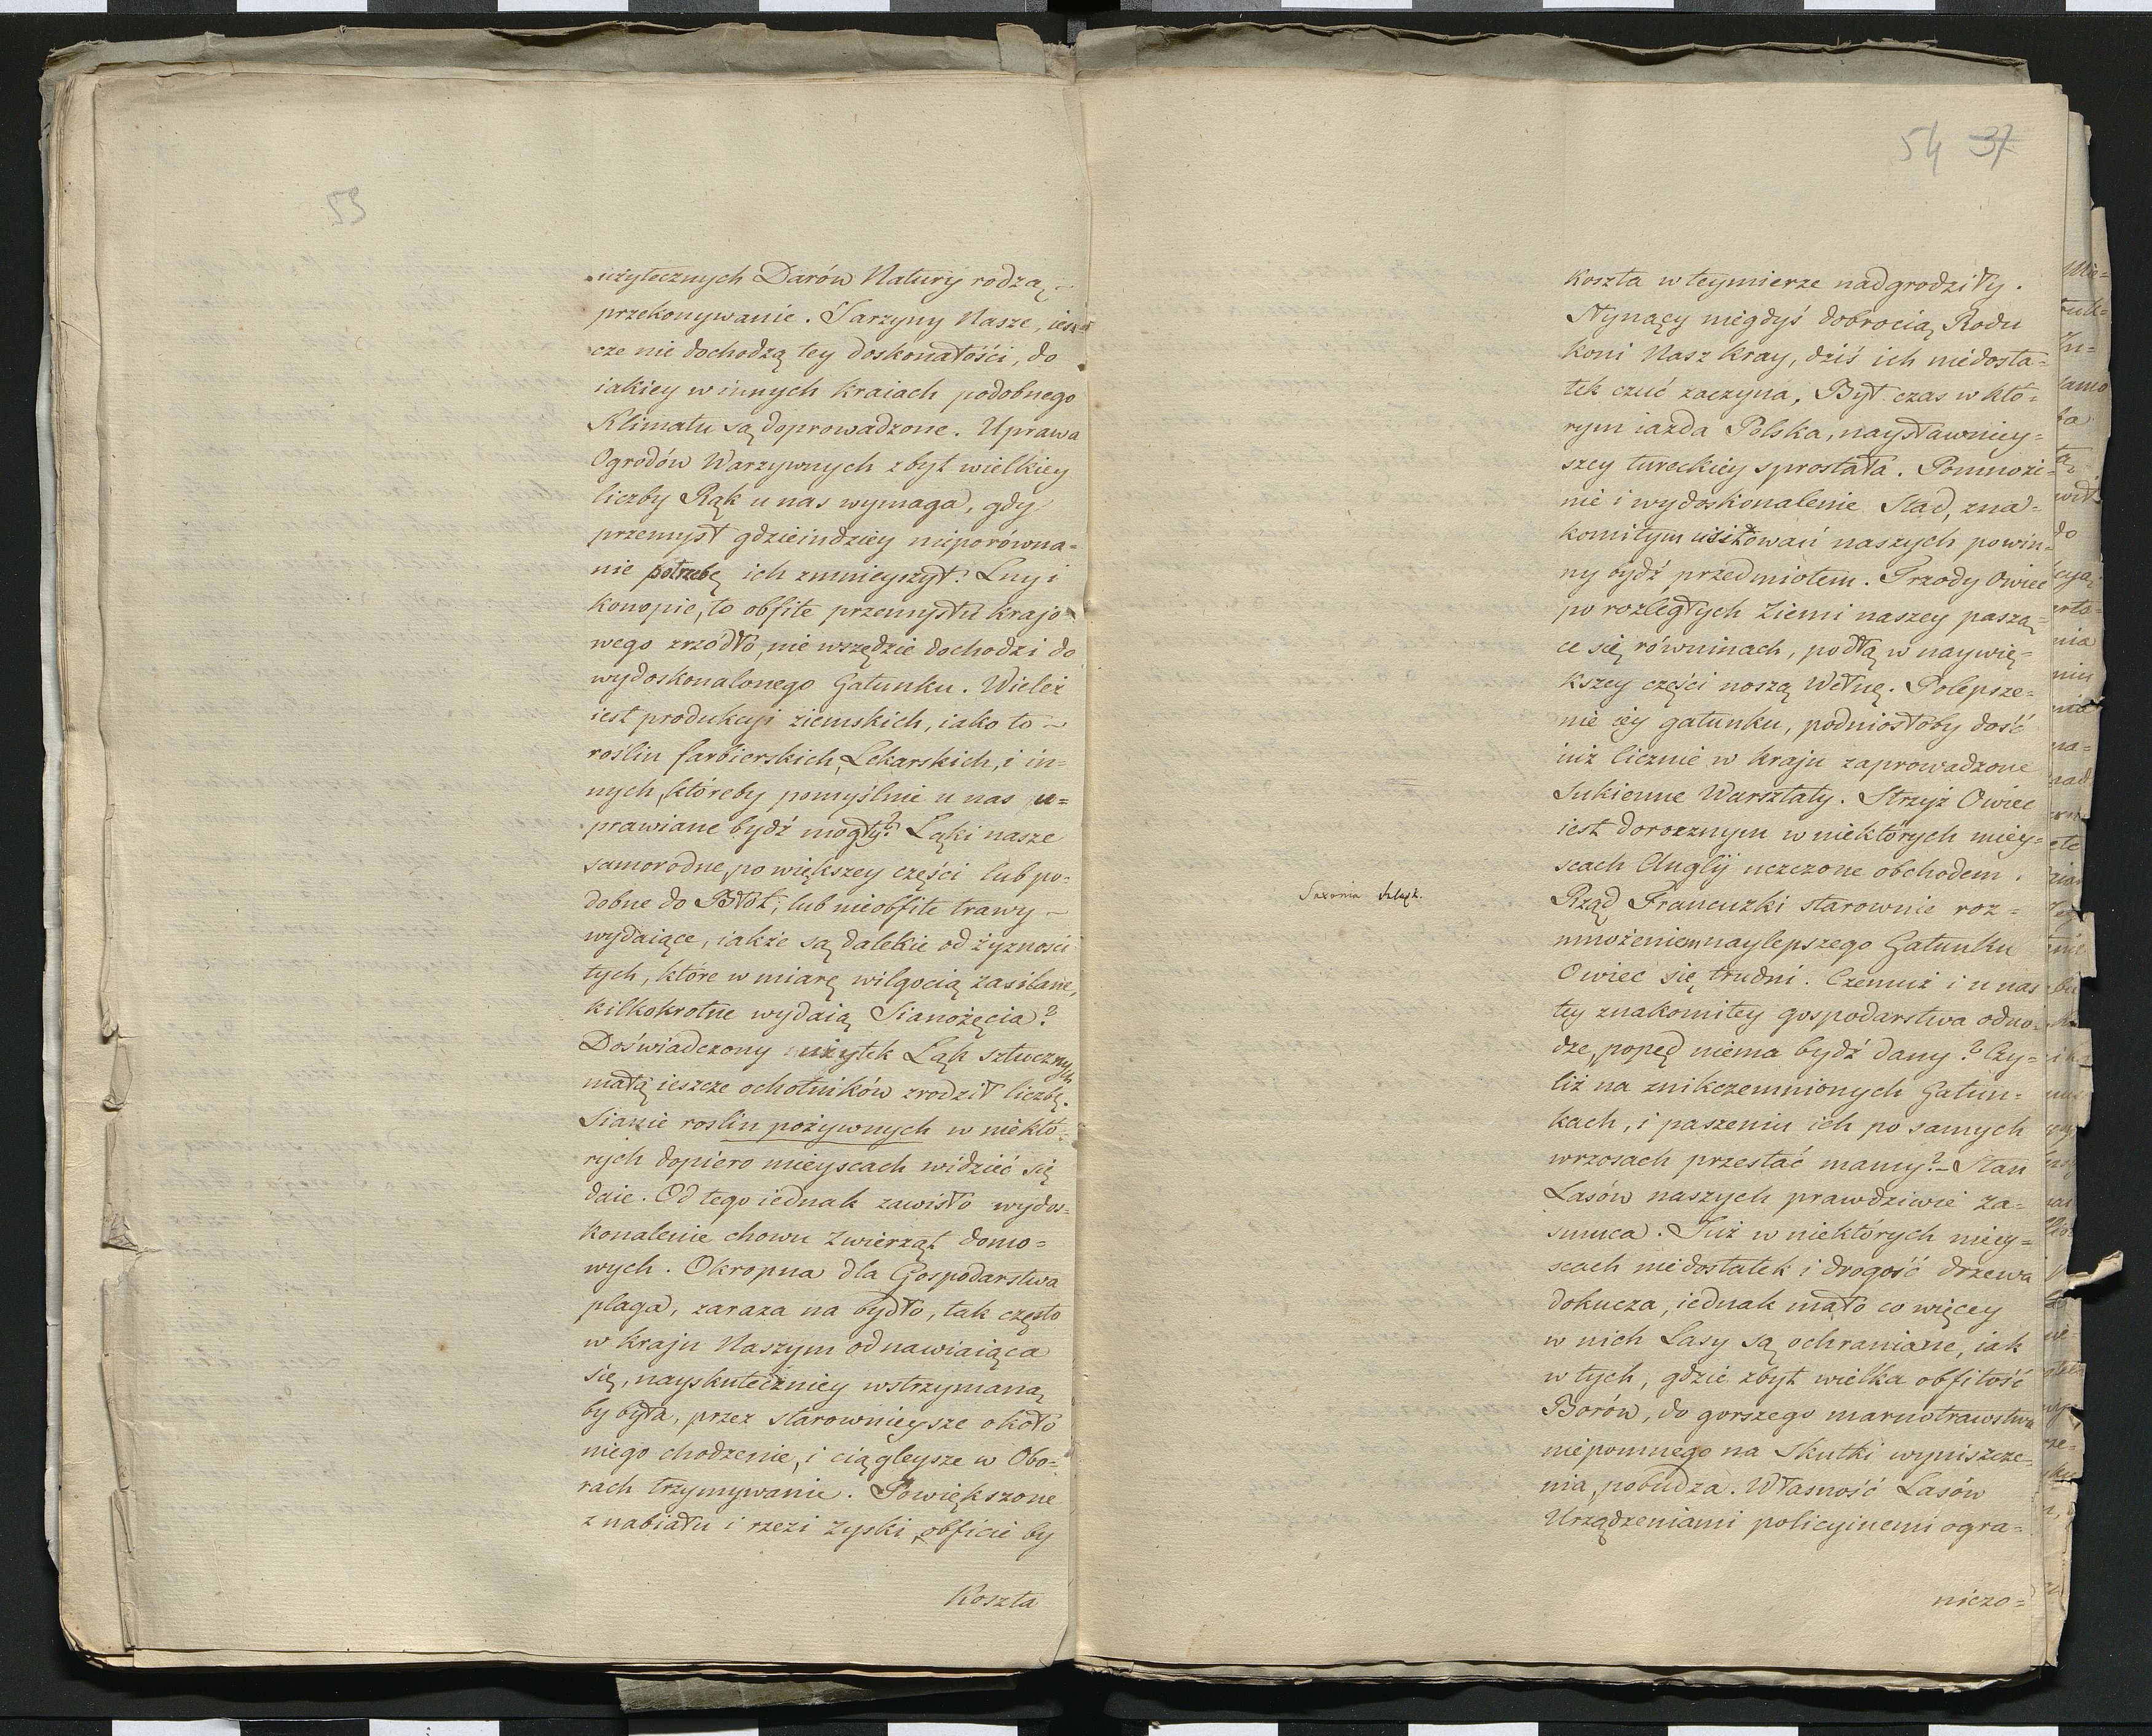 53
użytecznych Darów Natury rodzą
przekonywanie. Jarzyny Nasze, iesz
cze nie dochodzą tey doskonałości, do
iakiey w innych kraiach podobnego
Klimatu są doprowadzone. Uprawa
Ogrodów Warzywnych zbyt wielkiey
liczby Rąk u nas wymaga, gdy
przemysł gdzieindziey nieporówna=
nie potrzebę ich zmnieyszył. Lny i
konopie, to obfite przemysłu krajo
wego zrzódło, nie wszędzie dochodzi do
wydoskonalonego Gatunku. Wieleż
iest produkcji ziemskich, iako to -
roślin farbierskich, Lekarskich, i in=
nych, któreby pomyślnie u nas u=
prawiane bydź mogły? Łąki nasze
samorodne, po większey części lub po=
dobne do Błot, lub nieobfite trawy -
wydaiące, iakże są dalekie od żyzności
tych, które w miarę wilgocią zasilane,
kilkokrotne wydaią Sianożęcia?
Doświadczony użytek Łąk sztucznych
małą ieszcze ochotników zrodził liczbę.
Sianie roslin pożywnych w niektó=
rych dopiero mieyscach widzieć się
daie. Od tego iednak zawisło wydos=
konalenie chowu Zwierząt domo=
wych. Okropna dla Gospodarstwa
plaga, zaraza na bydło, tak często
w kraju Naszym odnawiaiąca
się, nayskuteczniey wstrzymaną
by była, przez starownieysze około
niego chodzenie, i ciągleysze w Obo=
rach trzymywanie. Powiększone
z nabiału i rzezi zyski, obficie by
Koszta
54 37
koszta w teymierze nadgrodziły.
Słynący niegdyś dobrocią Rodu
koni Nasz kray, dziś ich niedosta=
tek czuć zaczyna, Był czas w któ=
rym iazda Polska, naysławniey=
szey tureckiey sprostała. Pomnoże=
nie i wydoskonalenie Stad, zna=
komitym usiłowań naszych powin=
ny bydź przedmiotem. Trzody Owiec
po rozległych Ziemi naszey paszą=
ce się równinach, podłą w naywię=
kszey części noszą Wełnę. Polepsze=
nie iey gatunku, podniosłoby dość
iuż licznie w kraju zaprowadzone
Sukienne Warsztaty. Strzyż Owiec
iest dorocznym w niektórych miey=
scach Anglij uczczone obchodem.
Saxonia Szląsk.
Rząd Francuzki starownie roz=
mnożeniem naylepszego Gatunku
Owiec się trudni. Czemuż i u nas
tey znakomitey gospodarstwa odno=
dze, popęd niema bydź dany? Czy=
liż na znikczemnionych Gatun=
kach, i paszeniu ich po samych
wrzosach przestać mamy? - Stan
Lasów naszych prawdziwie za=
smuca. Już w niektórych miey=
scach niedostatek i drogość drzewa
dokucza, iednak mało co więcey
w nich Lasy są ochraniane, iak
w tych, gdzie zbyt wielka obfitość
Borów, do gorszego marnotrawstwa
niepomnego na Skutki wyniszcze=
nia, pobudza. Własność Lasów
Urządzeniami policyinemi ogra=
niczo=